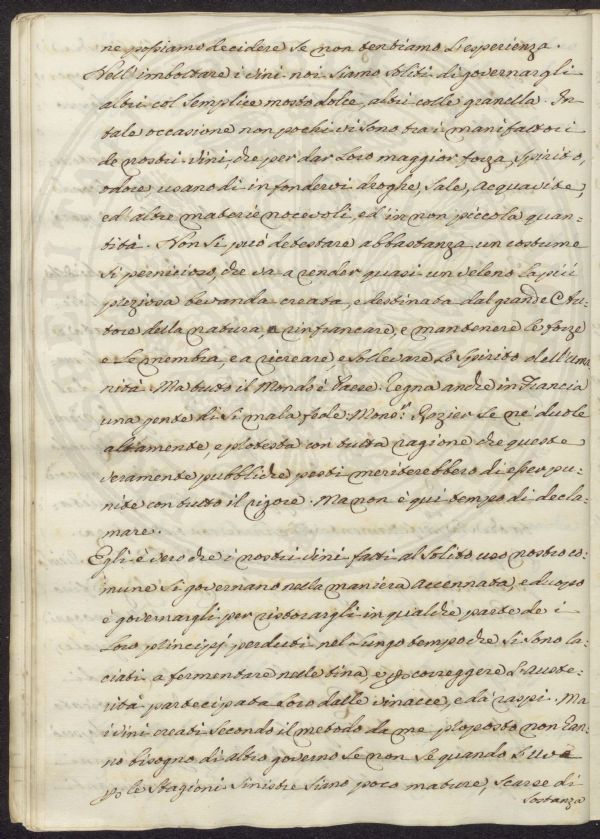 ne possiamo decidere se non tentiamo l'esperienza.
Nell'imbottare i vini noi siamo soliti di governargli
altri col semplice mosto dolce, altri colle granella. In
tale occasione non pochi vi sono tra i manifattori
de nostri vini, che per dar loro maggior forza, spirito,
odore usano di infondervi droghe, sale, acquavite,
ed altre materie nocevoli, ed in non piccola quan-
tità. Non si può detestare abbastanza un costume
sì pernicioso, che va a render quasi un veleno la più
preziosa bevanda creata, e destinata dal grande Au-
tore della natura, a rinfrancare, e mantenere le forze
e le membra, e a ricreare, e sollevare lo spirito dell'uma
nità. Ma tutto il Mondo è Paese. Regna anche in Francia
una gente di sì mala fede. Mons.r Rozier se ne duole
altamente, e protesta con tutta ragione che queste
veramente pubbliche pesti meriterebbero di esser pu-
nite con tutto il rigore. Ma non è qui tempo di decla-
mare.
Egli è vero che i nostri vini fatti al solito uso nostro co-
mune si governano nella maniera accennata, e d'uopo
è governargli per ristorargli in qualche parte de i
loro principj perduti nel lungo tempo che si sono la-
ciati a fermentare nelle tina e p. correggere l'auste-
rità partecipata loro dalle vinacce, e dà raspi. Ma
i vini creati secondo il metodo da me proposto non han-
no bisogno di altro governo se non se quando l'uva
p. le stagioni sinistre siano poco mature, scarse di
sostanza